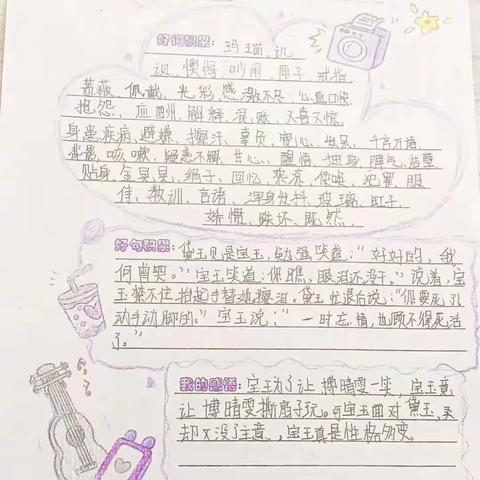 好词积累：玛瑙、讥
讥、懊悔、吵闹、匣子、戒指、
蔷薇、佩戴、光彩、感激不尽、心直口快、
抱怨、应酬、解释、混账、又喜又惊、
身患疾病、避嫌、擦汗、辜负、宽心、出呆、千言万语、
背影、咳嗽、疑惑不解、甘心、醒悟、独身、脾气、洁
贴身、金晃晃、绢子、回忆、乘凉、使唤、犯罪、服
侍、教训、言语、浑身发抖、玻璃、缸子、
娇惯、跌坏、既然、
好句积累：黛玉见是宝玉，勉强笑道：“好好的，我
何曾哭。”宝玉笑道：你瞧，眼泪还没干。”说着，宝
玉禁不住抬起手替她擦泪。黛玉忙退后说：“你要死，又
动手动脚的。”宝玉说：“一时忘情，也顾不得死活
了。”
我的感悟：宝玉为了让博晴雯一笑，宝玉竟
让博晴雯撕扇子玩。可宝玉面对黛玉，哭
却又没了主意，宝玉真是性格多变。